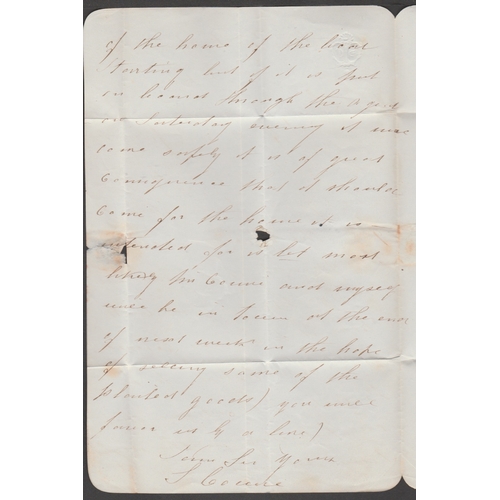 of the home of the boat
starting but if it is put
on board through the Agent
on Saturday evening it will
come safely it is of great
Consequence that it should
Come for the home it is
intended for is let most
likely Mr Coune and myself
will be in Town at the end
of next week in the hope
of seeing some of the
plaited goods) you will
favor us by a line)
I am Sir Yours